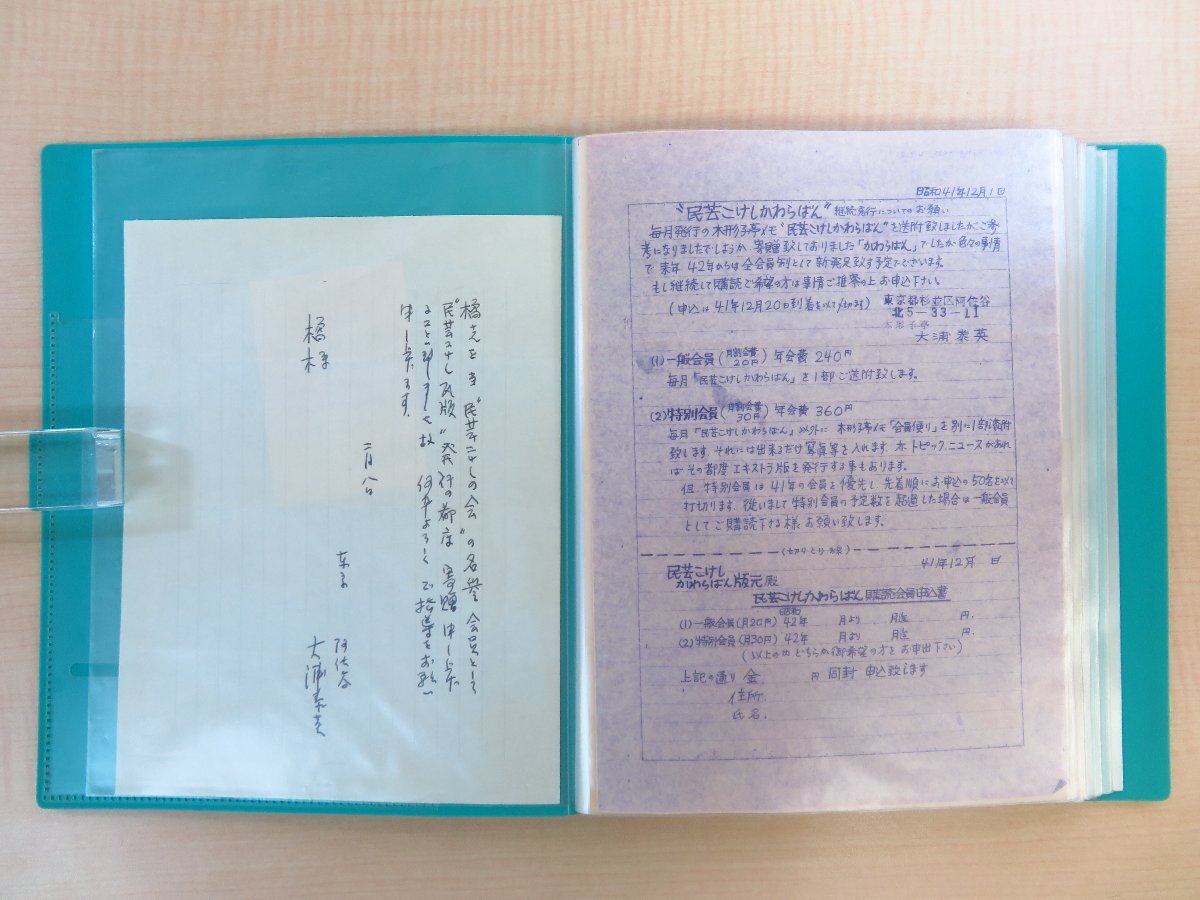 橘兄を当"民芸こけしの会"の名誉会員として
"民芸こけし瓦版"発行の都度寄贈申し上げ
ることに致しました故何卒よろしくご指導をお願い
申し上げます。
二月八日
東京 阿佐谷
大浦泰英
橘様
昭和41年12月1日
"民芸こけしかわらばん"継続発行についてのお願い
毎月発行の木形子亭メモ"民芸こけしかわらばん"を送附致しましたがご参
考になりましたでしょうか、寄贈致しておりました「かわらばん」でしたが色々の事情
で来年42年からは全会員制として新発足致す予定でございます。
もし継続して購読ご希望の方は事情ご推察の上お申込下さい。
(申込は41年12月20日到着を以て〆切ます)
東京都杉並区阿佐谷
北5-33-11
木形子亭
大浦泰英
(1)一般会員(月割会費20円)年会費240円
毎月「民芸こけしかわらばん」を1部ご送附致します。
(2)特別会員(月割会費30円)年会費360円
毎月「民芸こけしかわらばん」以外に木形子亭メモ「会員便り」を別に1部送附
致します。それには出来るだけ写真等を入れます。亦、トピック、ニュースがあれ
ばその都度エキストラ版を発行する事もあります。
但、特別会員は41年の会員を優先し先着順にお申込の50名を以て
打切ります。従いまして特別会員の予定数を超過した場合は一般会員
としてご購読下さる様お願い致します。
(切りとり線)
41年12月 日
民芸こけし
かわらばん版元殿
民芸こけしかわらばん購読会員申込書
(1)一般会員(月20円)昭和42年 月より 月迄 円.
(2)特別会員(月30円)42年 月より 月迄 円.
(以上の内どちらか御希望の方をお申出下さい)
上記の通り金 円同封申込致します
住所.
氏名.